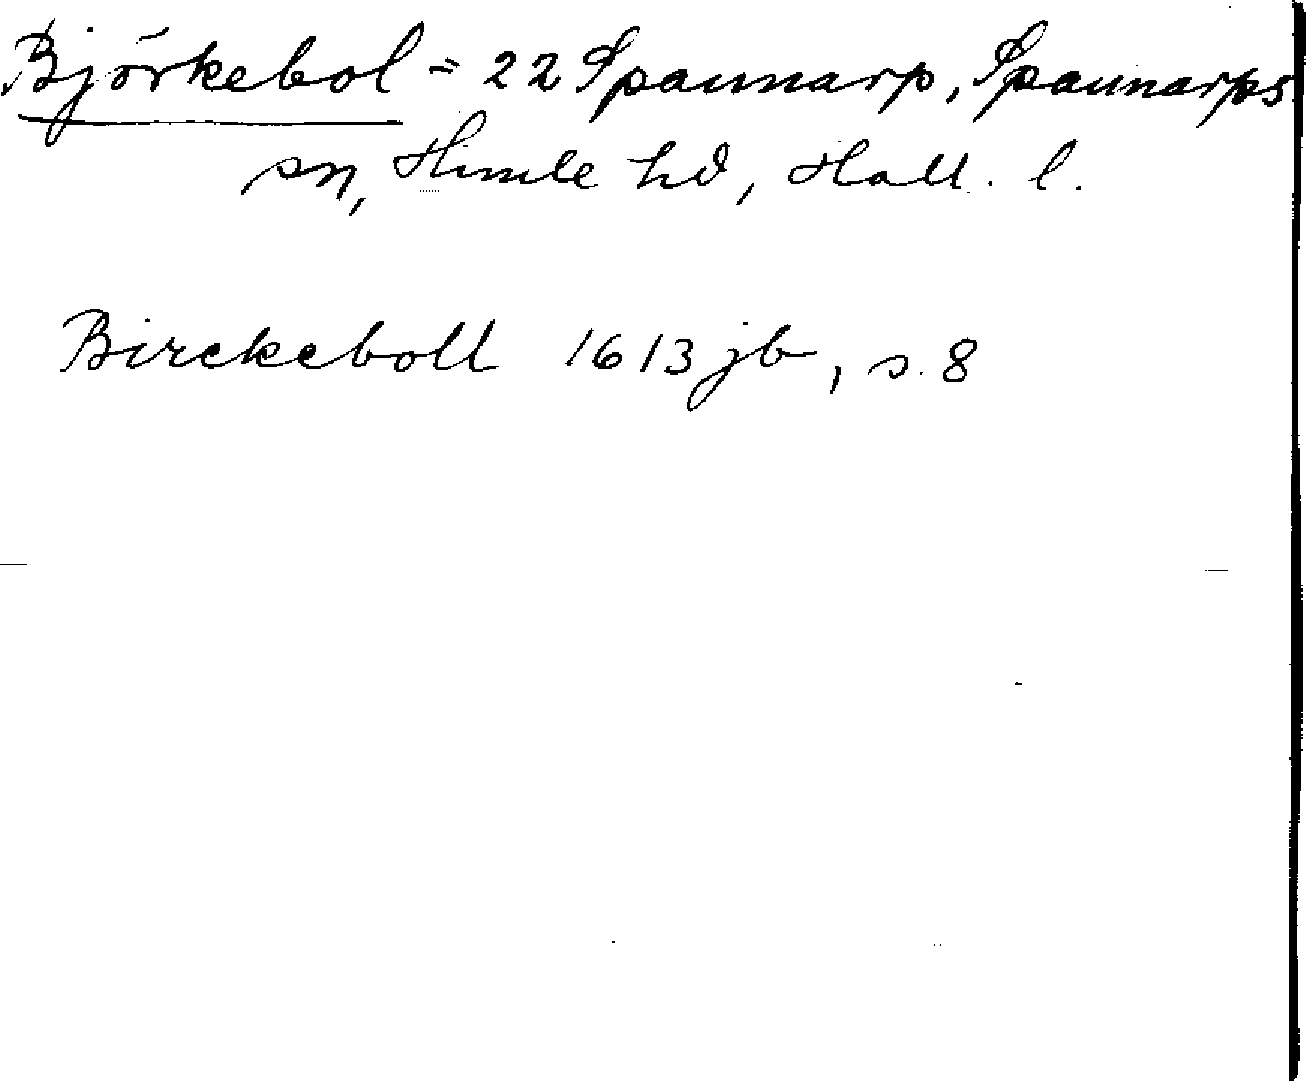 Björkebol = 22 Spannarp, Spannarps
sn, Himle hd, Hall. l.
Birckeboll 1613 jb, s. 8